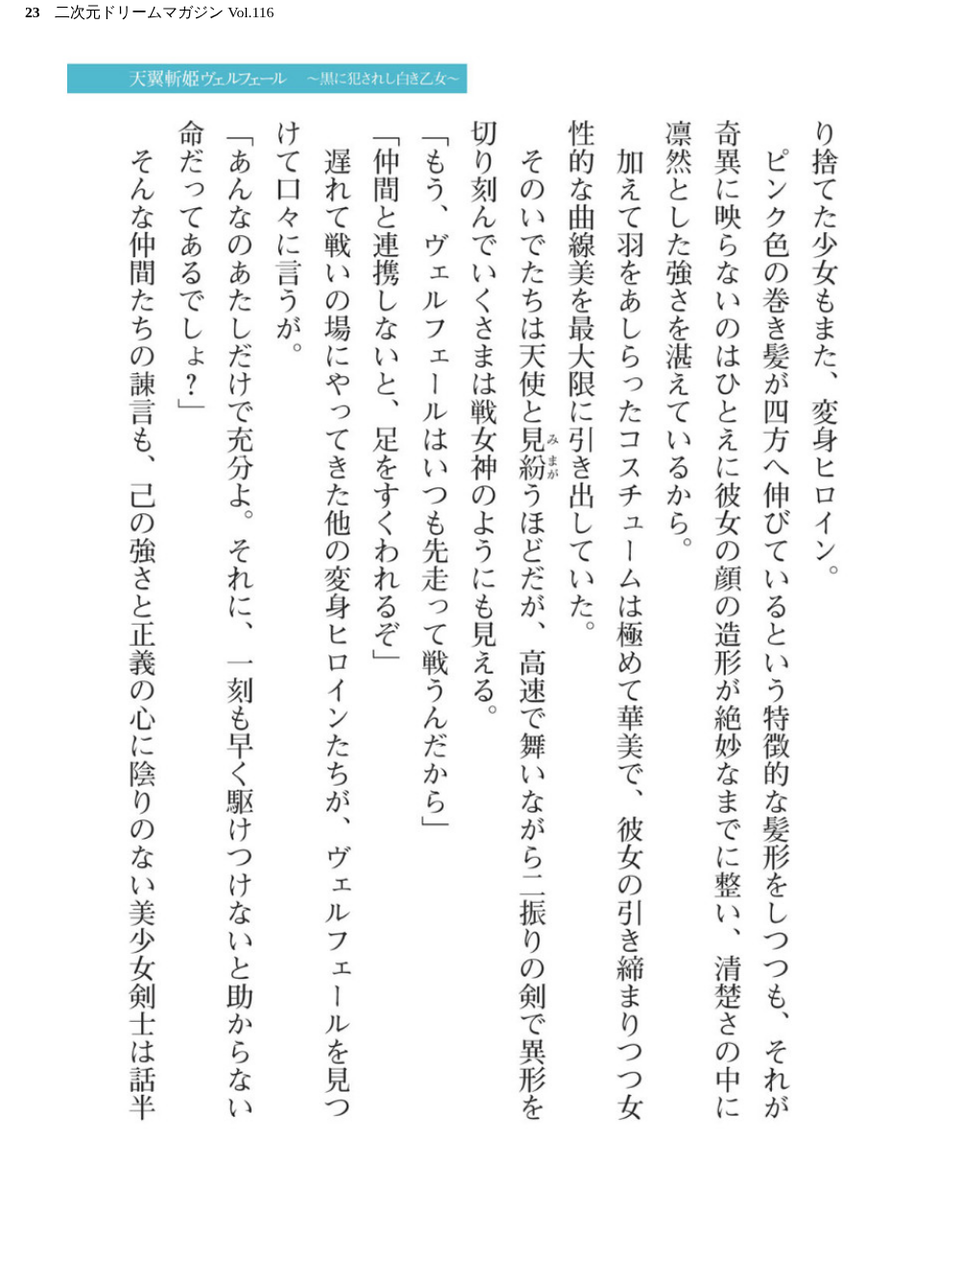 23 二次元ドリームマガジン Vol.116
天翼斬姫ヴェルフェール ～黒に犯されし白き乙女～
り捨てた少女もまた、変身ヒロイン。
ピンク色の巻き髪が四方へ伸びているという特徴的な髪形をしつつも、それが
奇異に映らないのはひとえに彼女の顔の造形が絶妙なまでに整い、清楚さの中に
凛然とした強さを湛えているから。
加えて羽をあしらったコスチュームは極めて華美で、彼女の引き締まりつつ女
性的な曲線美を最大限に引き出していた。
そのいでたちは天使と見紛うほどだが、高速で舞いながら二振りの剣で異形を
みまが
切り刻んでいくさまは戦女神のようにも見える。
「もう、ヴェルフェールはいつも先走って戦うんだから」
「仲間と連携しないと、足をすくわれるぞ」
遅れて戦いの場にやってきた他の変身ヒロインたちが、ヴェルフェールを見つ
けて口々に言うが。
「あんなのあたしだけで充分よ。それに、一刻も早く駆けつけないと助からない
命だってあるでしょ?」
そんな仲間たちの諫言も、己の強さと正義の心に陰りのない美少女剣士は話半